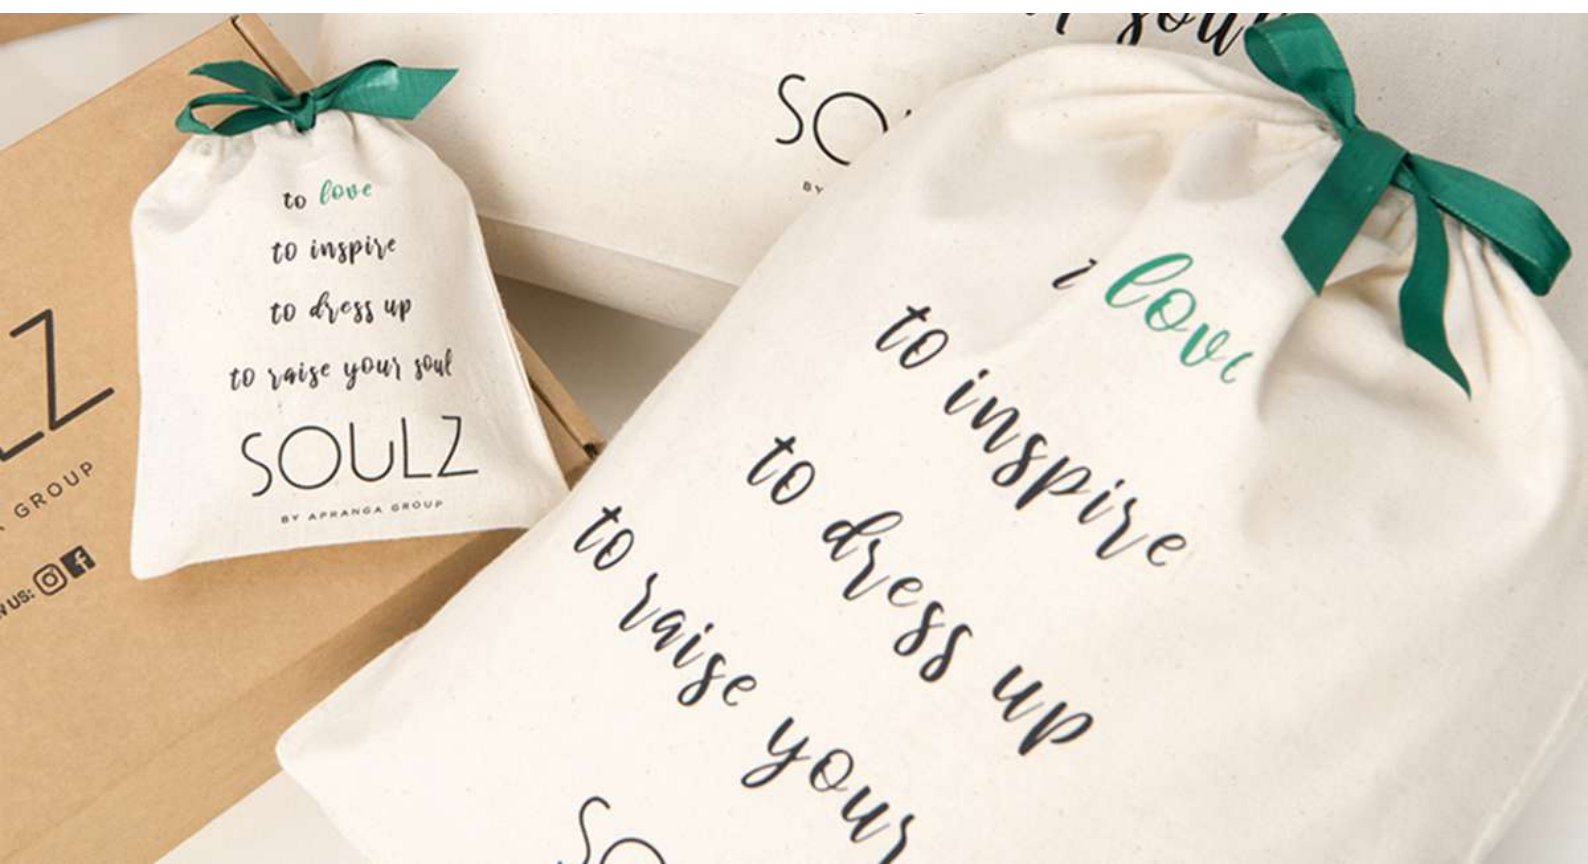 to love
to inspire
to dress up
to raise your soul
SOULZ
BY APRANGA GROUP
GROUP
US:
soul
BY
to inspire
to dress up
to raise your